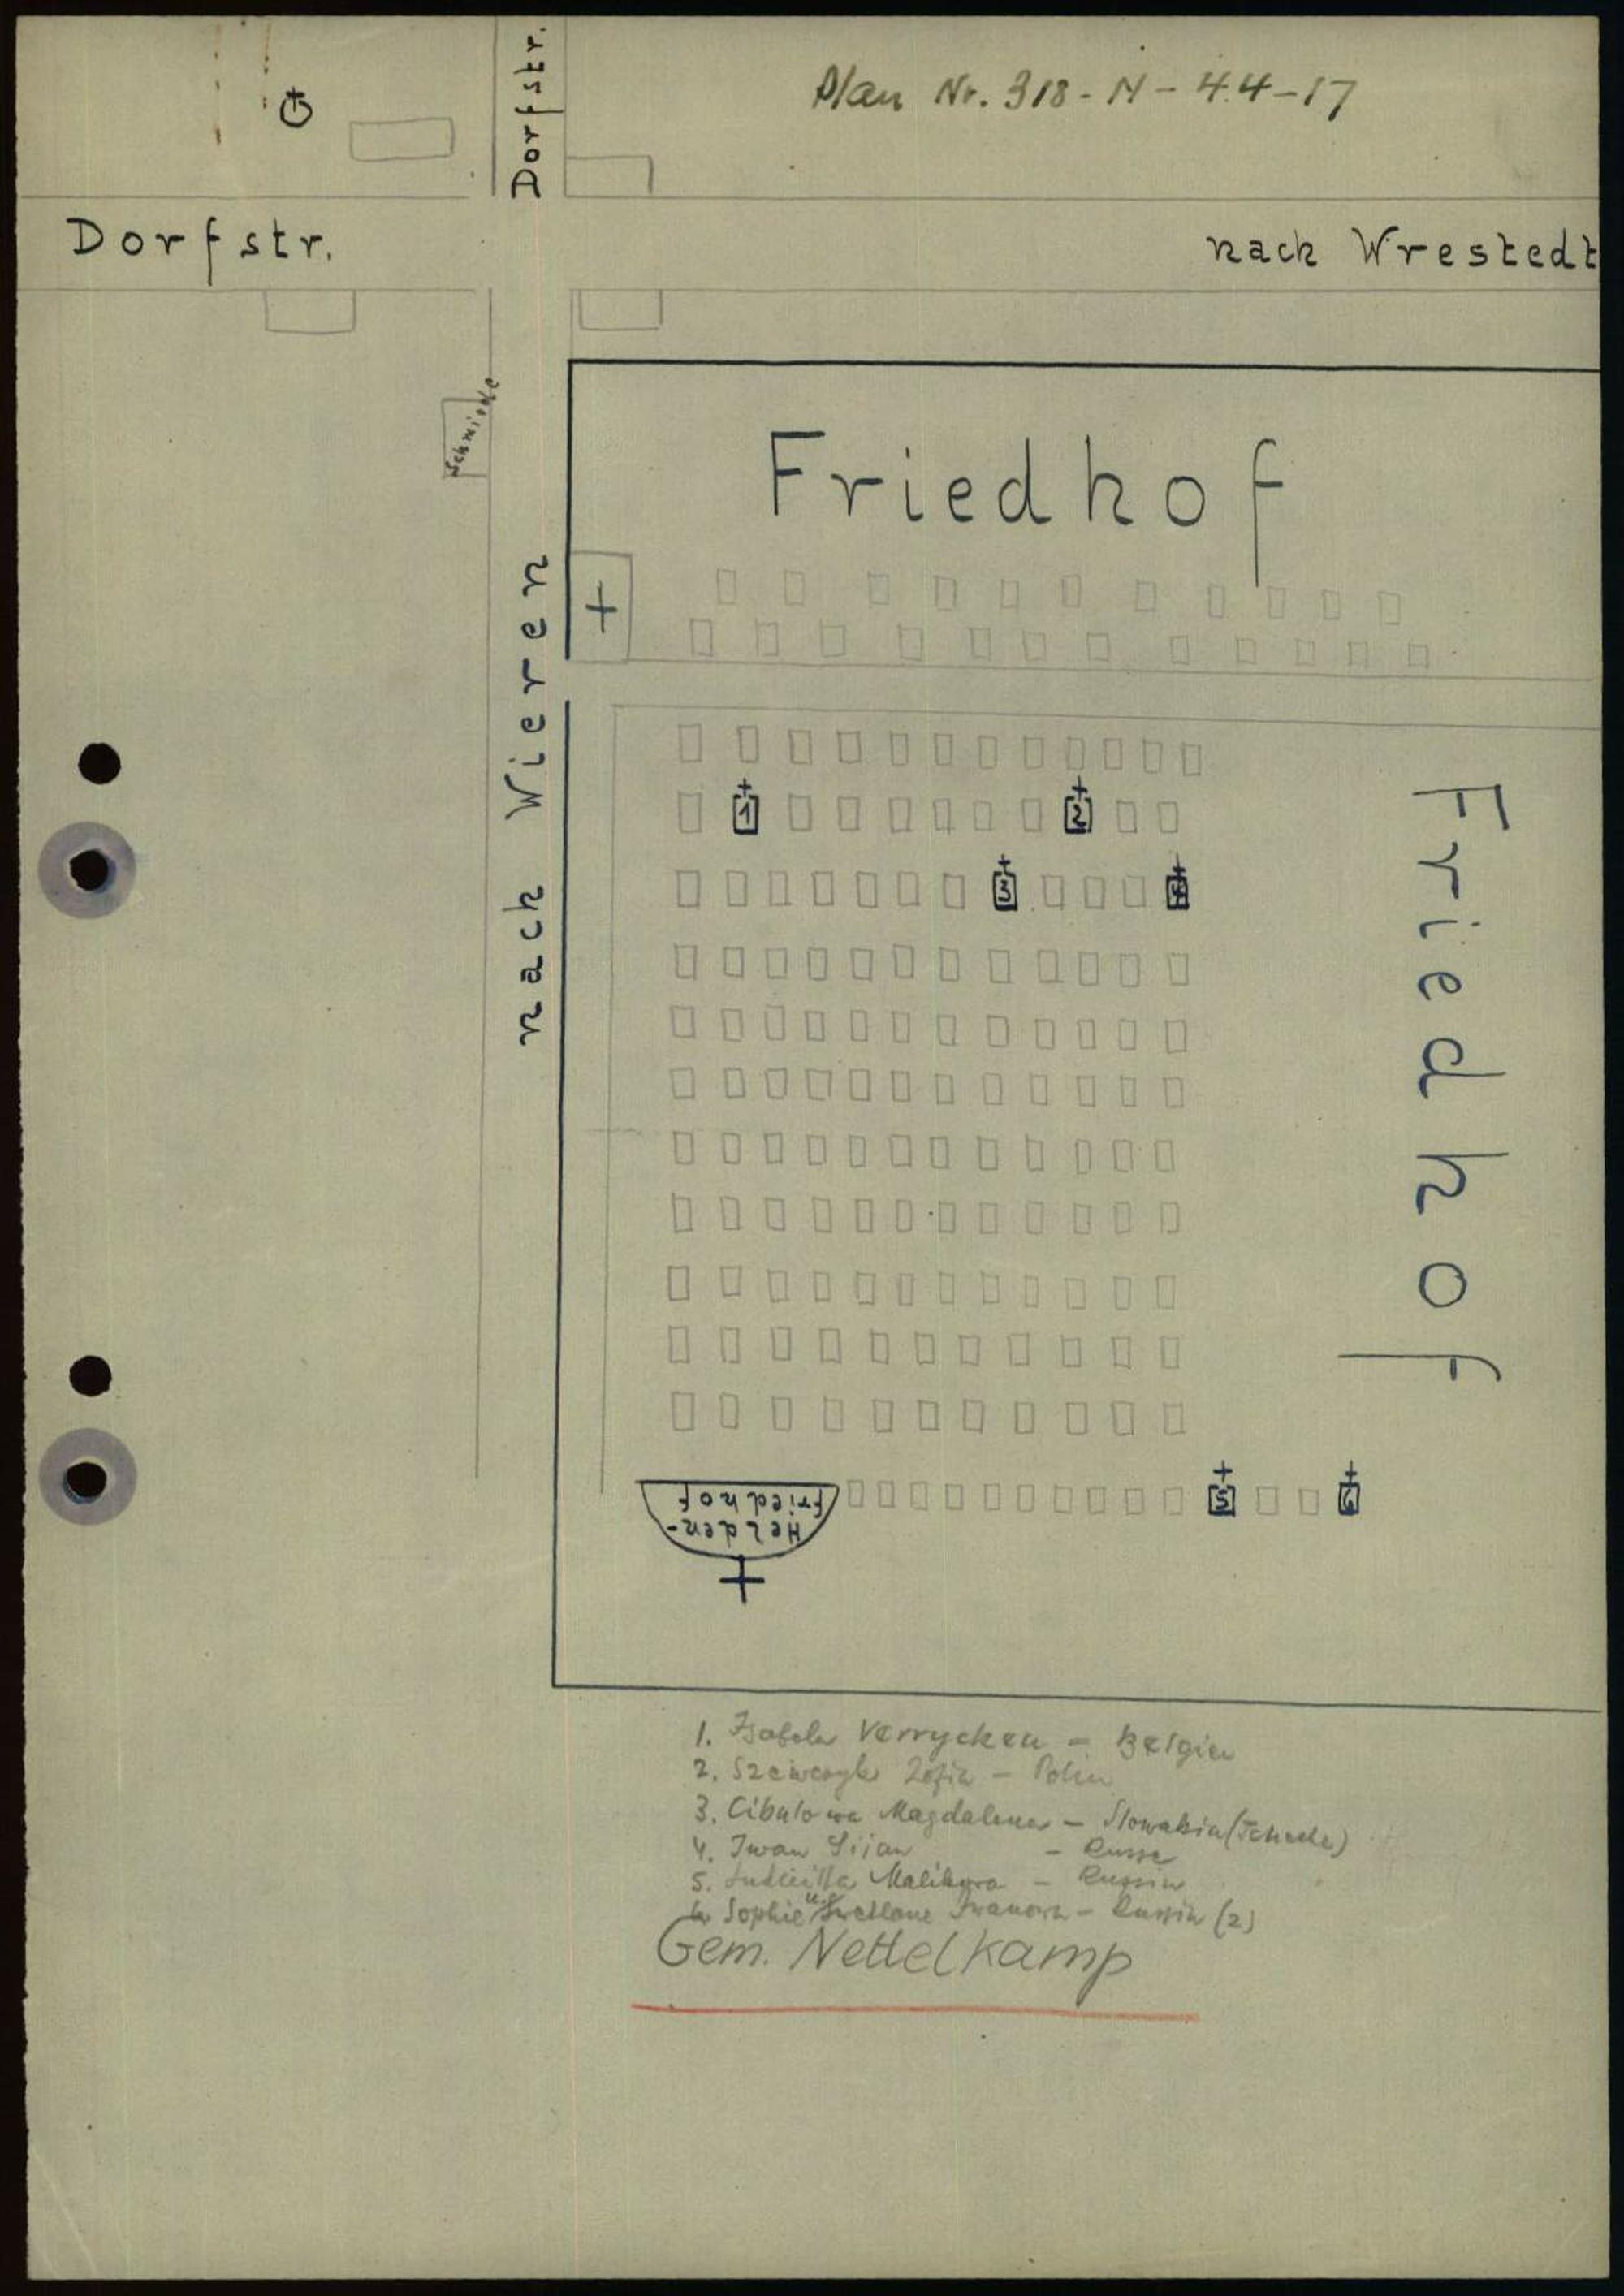 Plan Nr. 318-N-4.4-17
Dorfstr.
Dorfstr.
nach Wrestedt
Schmiede
Friedhof
nach Wieren
1
2
3
4
Friedhof
Helden-
friedhof
5
6
1. Verrycken - Belgien
2. Zofia - Polen
3. Cibulowa Magdalena - Slowakin
4. Iwan - Russe
5. Malikowa - Russin
6. Sophie u. Swetlane Iwanowa - Russin (2)
Gem. Nettelkamp